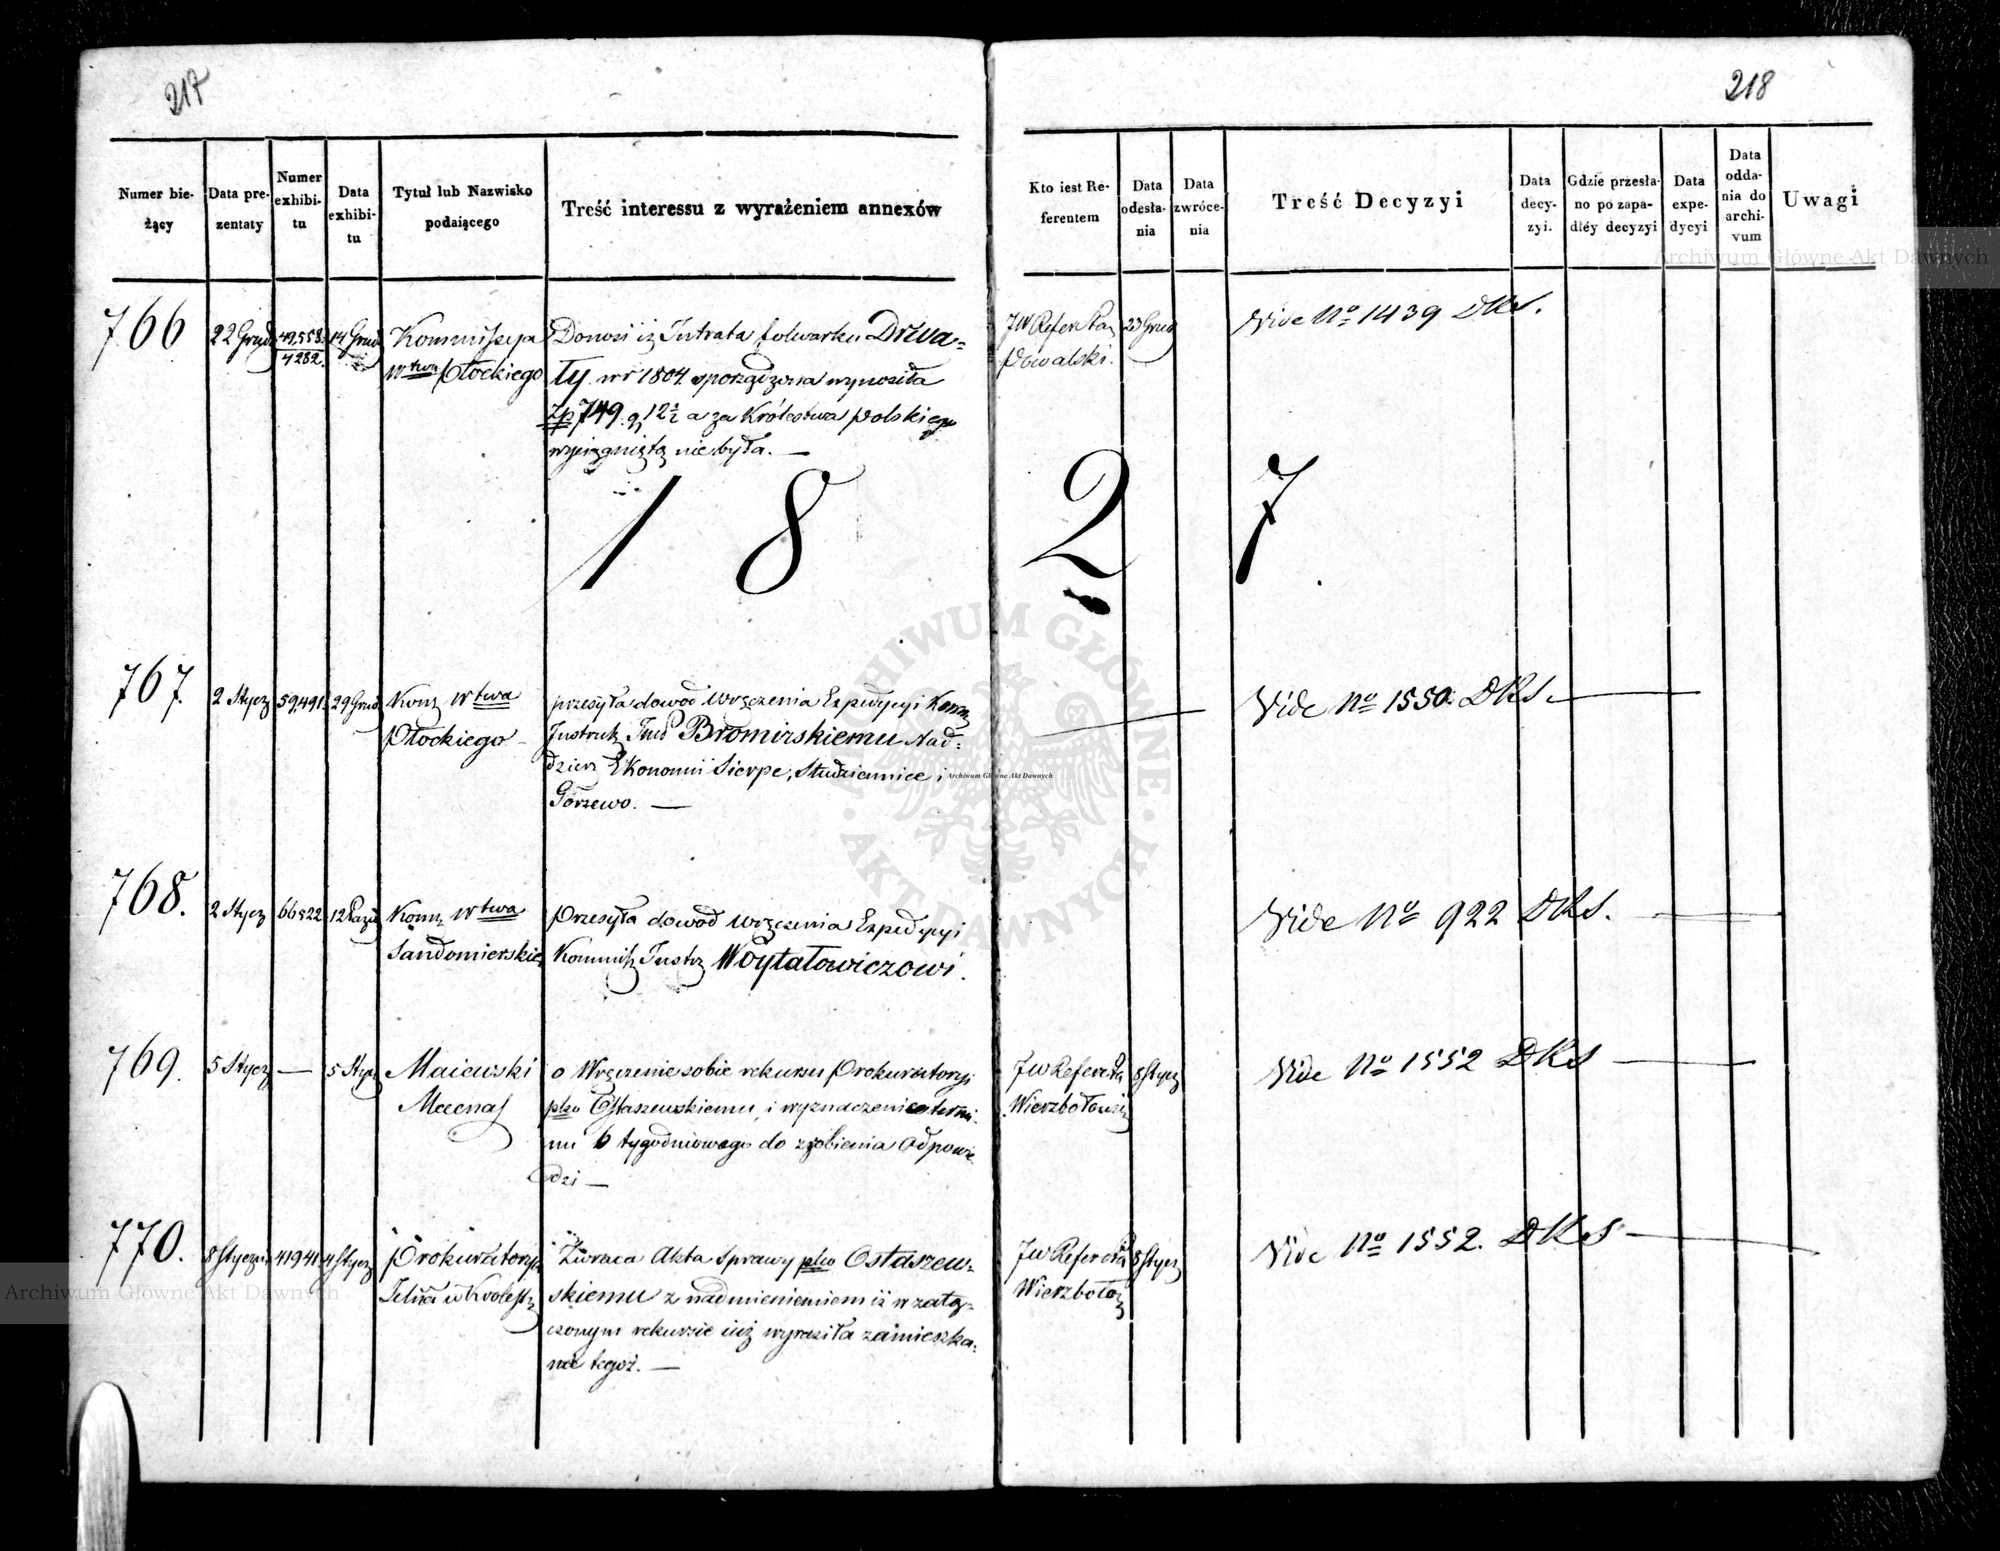 217
218
Numer bieżący
Data prezentaty
Numer exhibitu
Data exhibitu
Tytuł lub Nazwisko podaiącego
Treść interessu z wyrażeniem annexów
Kto iest Referentem
Data odesłania
Data zwrócenia
Treść Decyzyi
Data decyzyi.
Gdzie przesłano po zapadłéy decyzyi
Data expedycyi
Data oddania do archivum
Uwagi
766
22 Grud
49,558.
4282.
14 Grud
Kommissya
wtwa Płockiego
Donosi iż Intrata folwarku Drwa=
ły w r 1804 sporządzona wynosiła
Zp 749. g 12½ a za Królestwa Polskiego
wyciągniętą nie była. —
JW Referendarz
Powalski.
23 Grud
Vide No 1439 DKS.
1 8 2 7
767.
2 Stycz
59,491.
29 Grud
Kom Wtwa
Płockiego
przesyła dowód wręczenia Expedycyi Komm
Instruk Bromirskiemu Nad=
dzier Ekonomii Sierpc, Studzienniec i
Górzewo. —
Vide No 1550. DKS.
768.
2 Stycz
66522
12 Paźd
Kom Wtwa
Sandomierskie
Przesyła dowód wręczenia Expedycyi
Kommis Instr Woytałowiczowi.
Vide No 922 DKS.
769.
5 Stycz
—
5 Stycz
Maiewski
Mecenas
o Wręczenie sobie rekursu Prokuratoryi
plko Ostaszewskiemu, i wyznaczenie termi=
nu 6 tygodniowego do zrobienia Odpowie
dzi —
JW Referenda
Wierzbołowski
8 Stycz
Vide No 1552 DKS
770.
8 Stycznia
41941
4 Stycz
Prokuratorya
Jelna w Kroles
Zwraca Akta Sprawy plko Ostaszew=
skiemu z nadmienieniem iż w załą=
czonym rekursie iuż wyraziła zamieszka=
nie tegoż. —
JW Referenda
Wierzboło
8 Stycz
Vide No 1552. DKS
Archiwum Główne Akt Dawnych
Archiwum Główne Akt Dawnych
Archiwum Główne Akt Dawnych
ARCHIWUM GŁÓWNE · AKT DAWNYCH ·